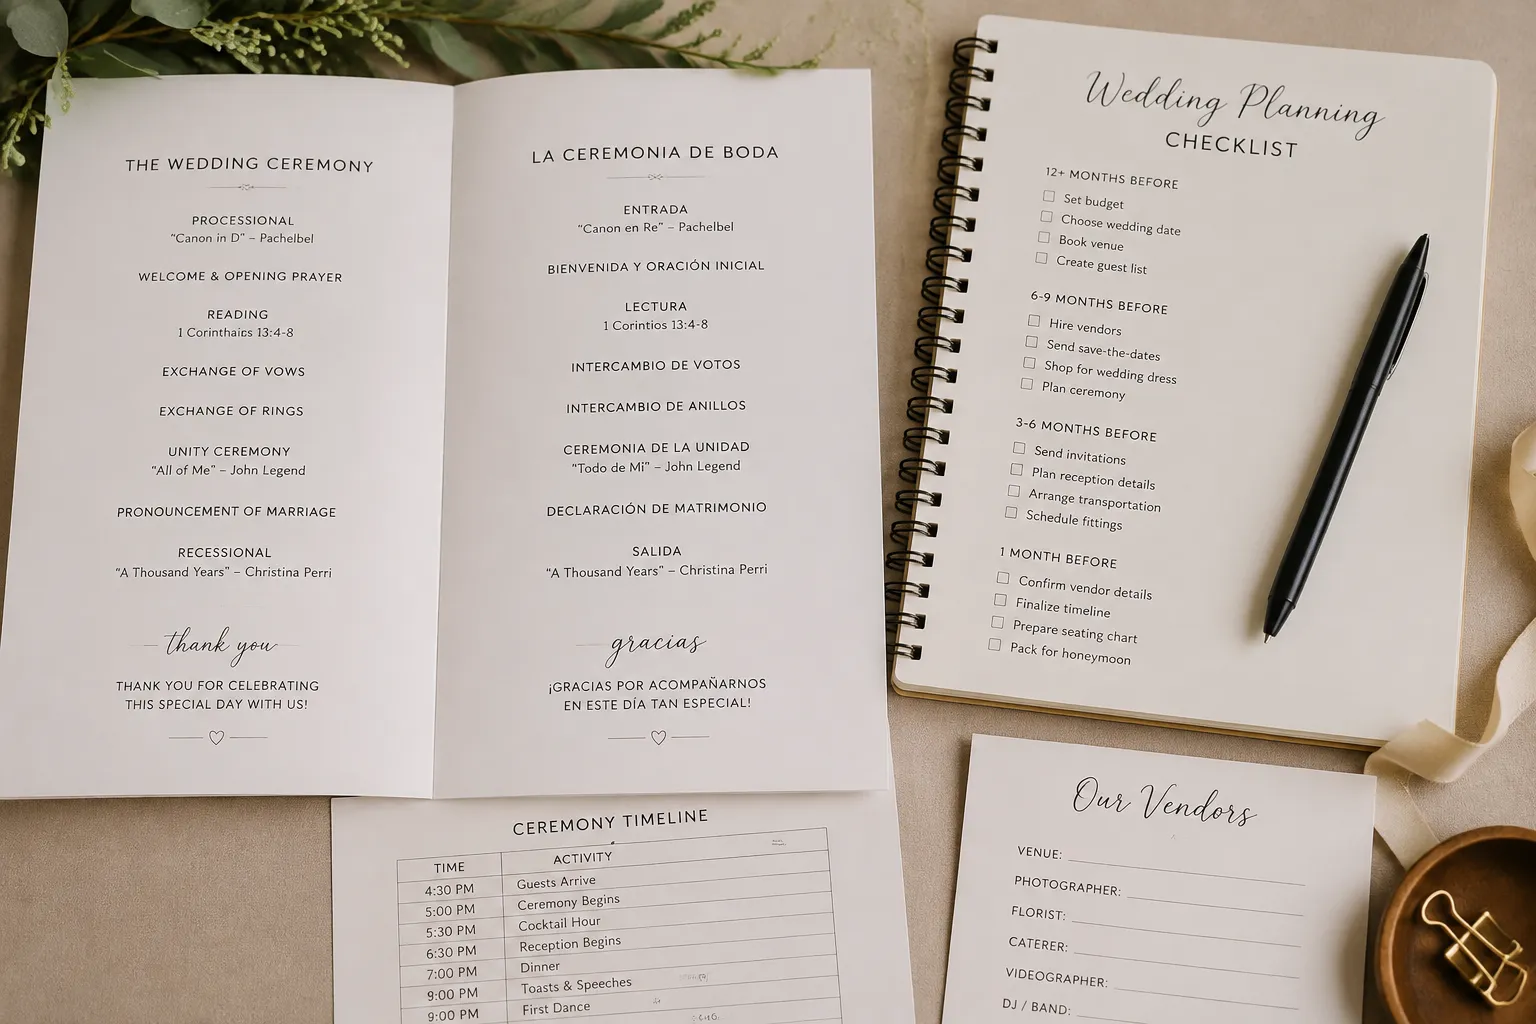 THE WEDDING CEREMONY
PROCESSIONAL
“Canon in D” – Pachelbel
WELCOME & OPENING PRAYER
READING
1 Corinthains 13:4-8
EXCHANGE OF VOWS
EXCHANGE OF RINGS
UNITY CEREMONY
“All of Me” – John Legend
PRONOUNCEMENT OF MARRIAGE
RECESSIONAL
“A Thousand Years” – Christina Perri
thank you
THANK YOU FOR CELEBRATING
THIS SPECIAL DAY WITH US!
LA CEREMONIA DE BODA
ENTRADA
“Canon en Re” – Pachelbel
BIENVENIDA Y ORACIÓN INICIAL
LECTURA
1 Corintios 13:4-8
INTERCAMBIO DE VOTOS
INTERCAMBIO DE ANILLOS
CEREMONIA DE LA UNIDAD
“Todo de Mi” – John Legend
DECLARACIÓN DE MATRIMONIO
SALIDA
“A Thousand Years” – Christina Perri
gracias
¡GRACIAS POR ACOMPAÑARNOS
EN ESTE DÍA TAN ESPECIAL!
Wedding Planning
CHECKLIST
12+ MONTHS BEFORE
Set budget
Choose wedding date
Book venue
Create guest list
6-9 MONTHS BEFORE
Hire vendors
Send save-the-dates
Shop for wedding dress
Plan ceremony
3-6 MONTHS BEFORE
Send invitations
Plan reception details
Arrange transportation
Schedule fittings
1 MONTH BEFORE
Confirm vendor details
Finalize timeline
Prepare seating chart
Pack for honeymoon
CEREMONY TIMELINE
TIME ACTIVITY
4:30 PM Guests Arrive
5:00 PM Ceremony Begins
5:30 PM Cocktail Hour
6:30 PM Reception Begins
7:00 PM Dinner
9:00 PM Toasts & Speeches
9:00 PM First Dance
Our Vendors
VENUE:
PHOTOGRAPHER:
FLORIST:
CATERER:
VIDEOGRAPHER:
DJ / BAND: